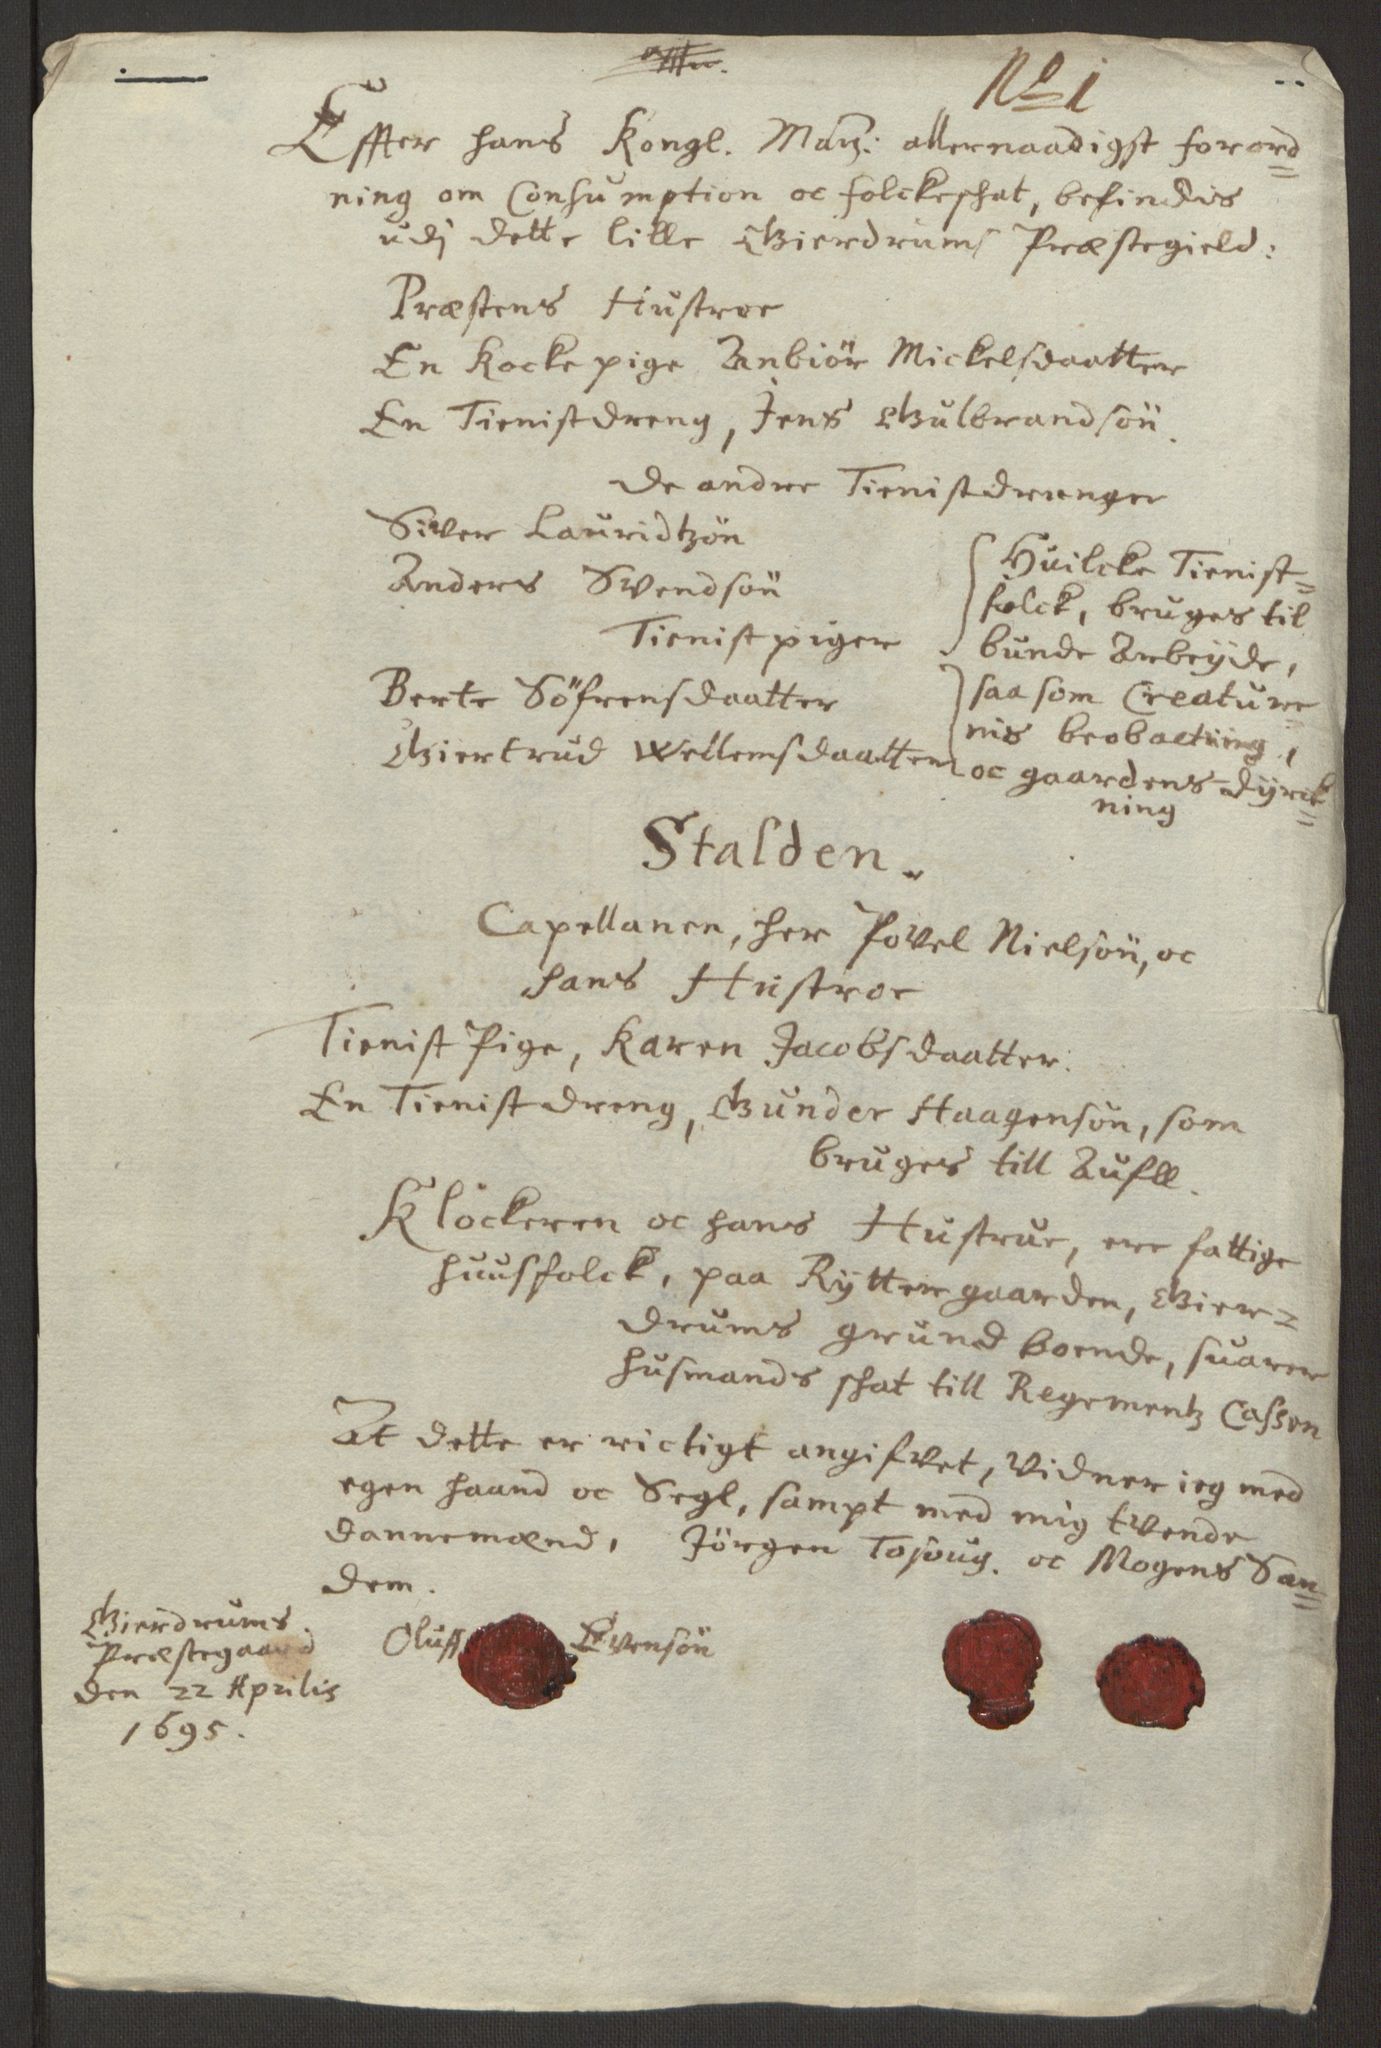 No 1
Effter hans Kongl. Maÿ: allernaadigst forord=
ning om Consumption oc folckeskat, befindis
udj dette lille Gierdrums Præstegield:
Præstens Hustroe
En Kocke pige Anbiör Mickelsdaatter
En Tienistdreng, Jens Gulbrandsön.
De andre Tienistdrenger
Siver Lauridtzön
Anders Svendsön
Tienistpiger
Berte Söfrensdaatter
Giertrud Wellemsdaatter
Huilcke Tienist=
folck, bruges til
bunde Arbeÿde,
saa som Creature=
nis beobacting,
oc gaardens dÿrck=
ning
Stalden.
Capellanen, her Povel Nielsön, oc
hans Hustroe
Tienist Pige, Karen Jacobsdaatter.
En Tienistdreng, Gunder Haagensön, som
bruges till Aufll.
Klöckeren oc hans Hustrue, ere fattige
huusfolck, paa Rÿttergaarden, Gier=
drums grund boende, suarer
husmands skat till Regementz Cassen
At dette er rictigt angifvet, vidner ieg med
egen haand oc Segl, sampt med mig tvende
dannemænd, Jörgen . oc Mogens San=
dem.
Gierdrums
Præstegaard
den 22 Aprilis
1695.
Oluff Evensön